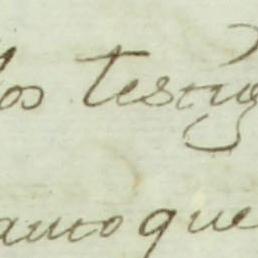 los testig
auto que